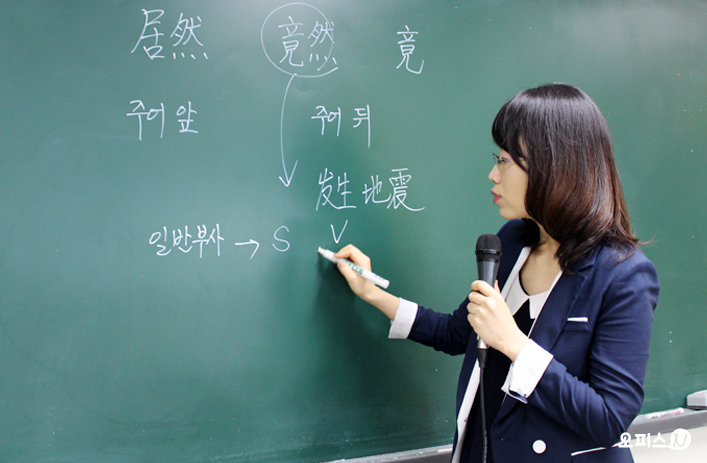 居然 竟然 竟
주어 앞 주어 뒤
发生 地震
일반부사 → S V
오피스N